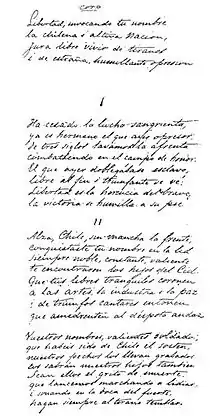 coro
Libertad, invocando tu nombre
la chilena i altiva nacion,
jura libre vivir de tiranos
i de estraña, humillante opresion
I
Ha cesado la lucha sangrienta,
ya es hermano el que ayer opresor,
de tres siglos lavamos la afrenta
combatiendo en el campo de honor.
El que ayer doblegabase esclavo,
libre al fin i triunfante se vé;
Libertad es la herencia del bravo,
la victoria se humilla a su pié.
II
Alza, Chile, sin mancha la frente;
conquistaste tu nombre en la lid;
siempre noble, constante, valiente
te encontraron los hijos del Cid.
Que tus libres tranquilos coronen
a las artes, la industria i la paz
i de triunfos cantares entonen
que amedrenten al déspota audaz.
Vuestros nombres, valientes soldados,
que habeis sido de Chile el sosten,
nuestros pechos los llevan grabados
los sabrán nuestros hijos tambien.
Sean ellos el grito de muerte
que lancemos marchando a lidiar,
i sonando en la boca del fuerte,
hagan siempre al tirano temblar.